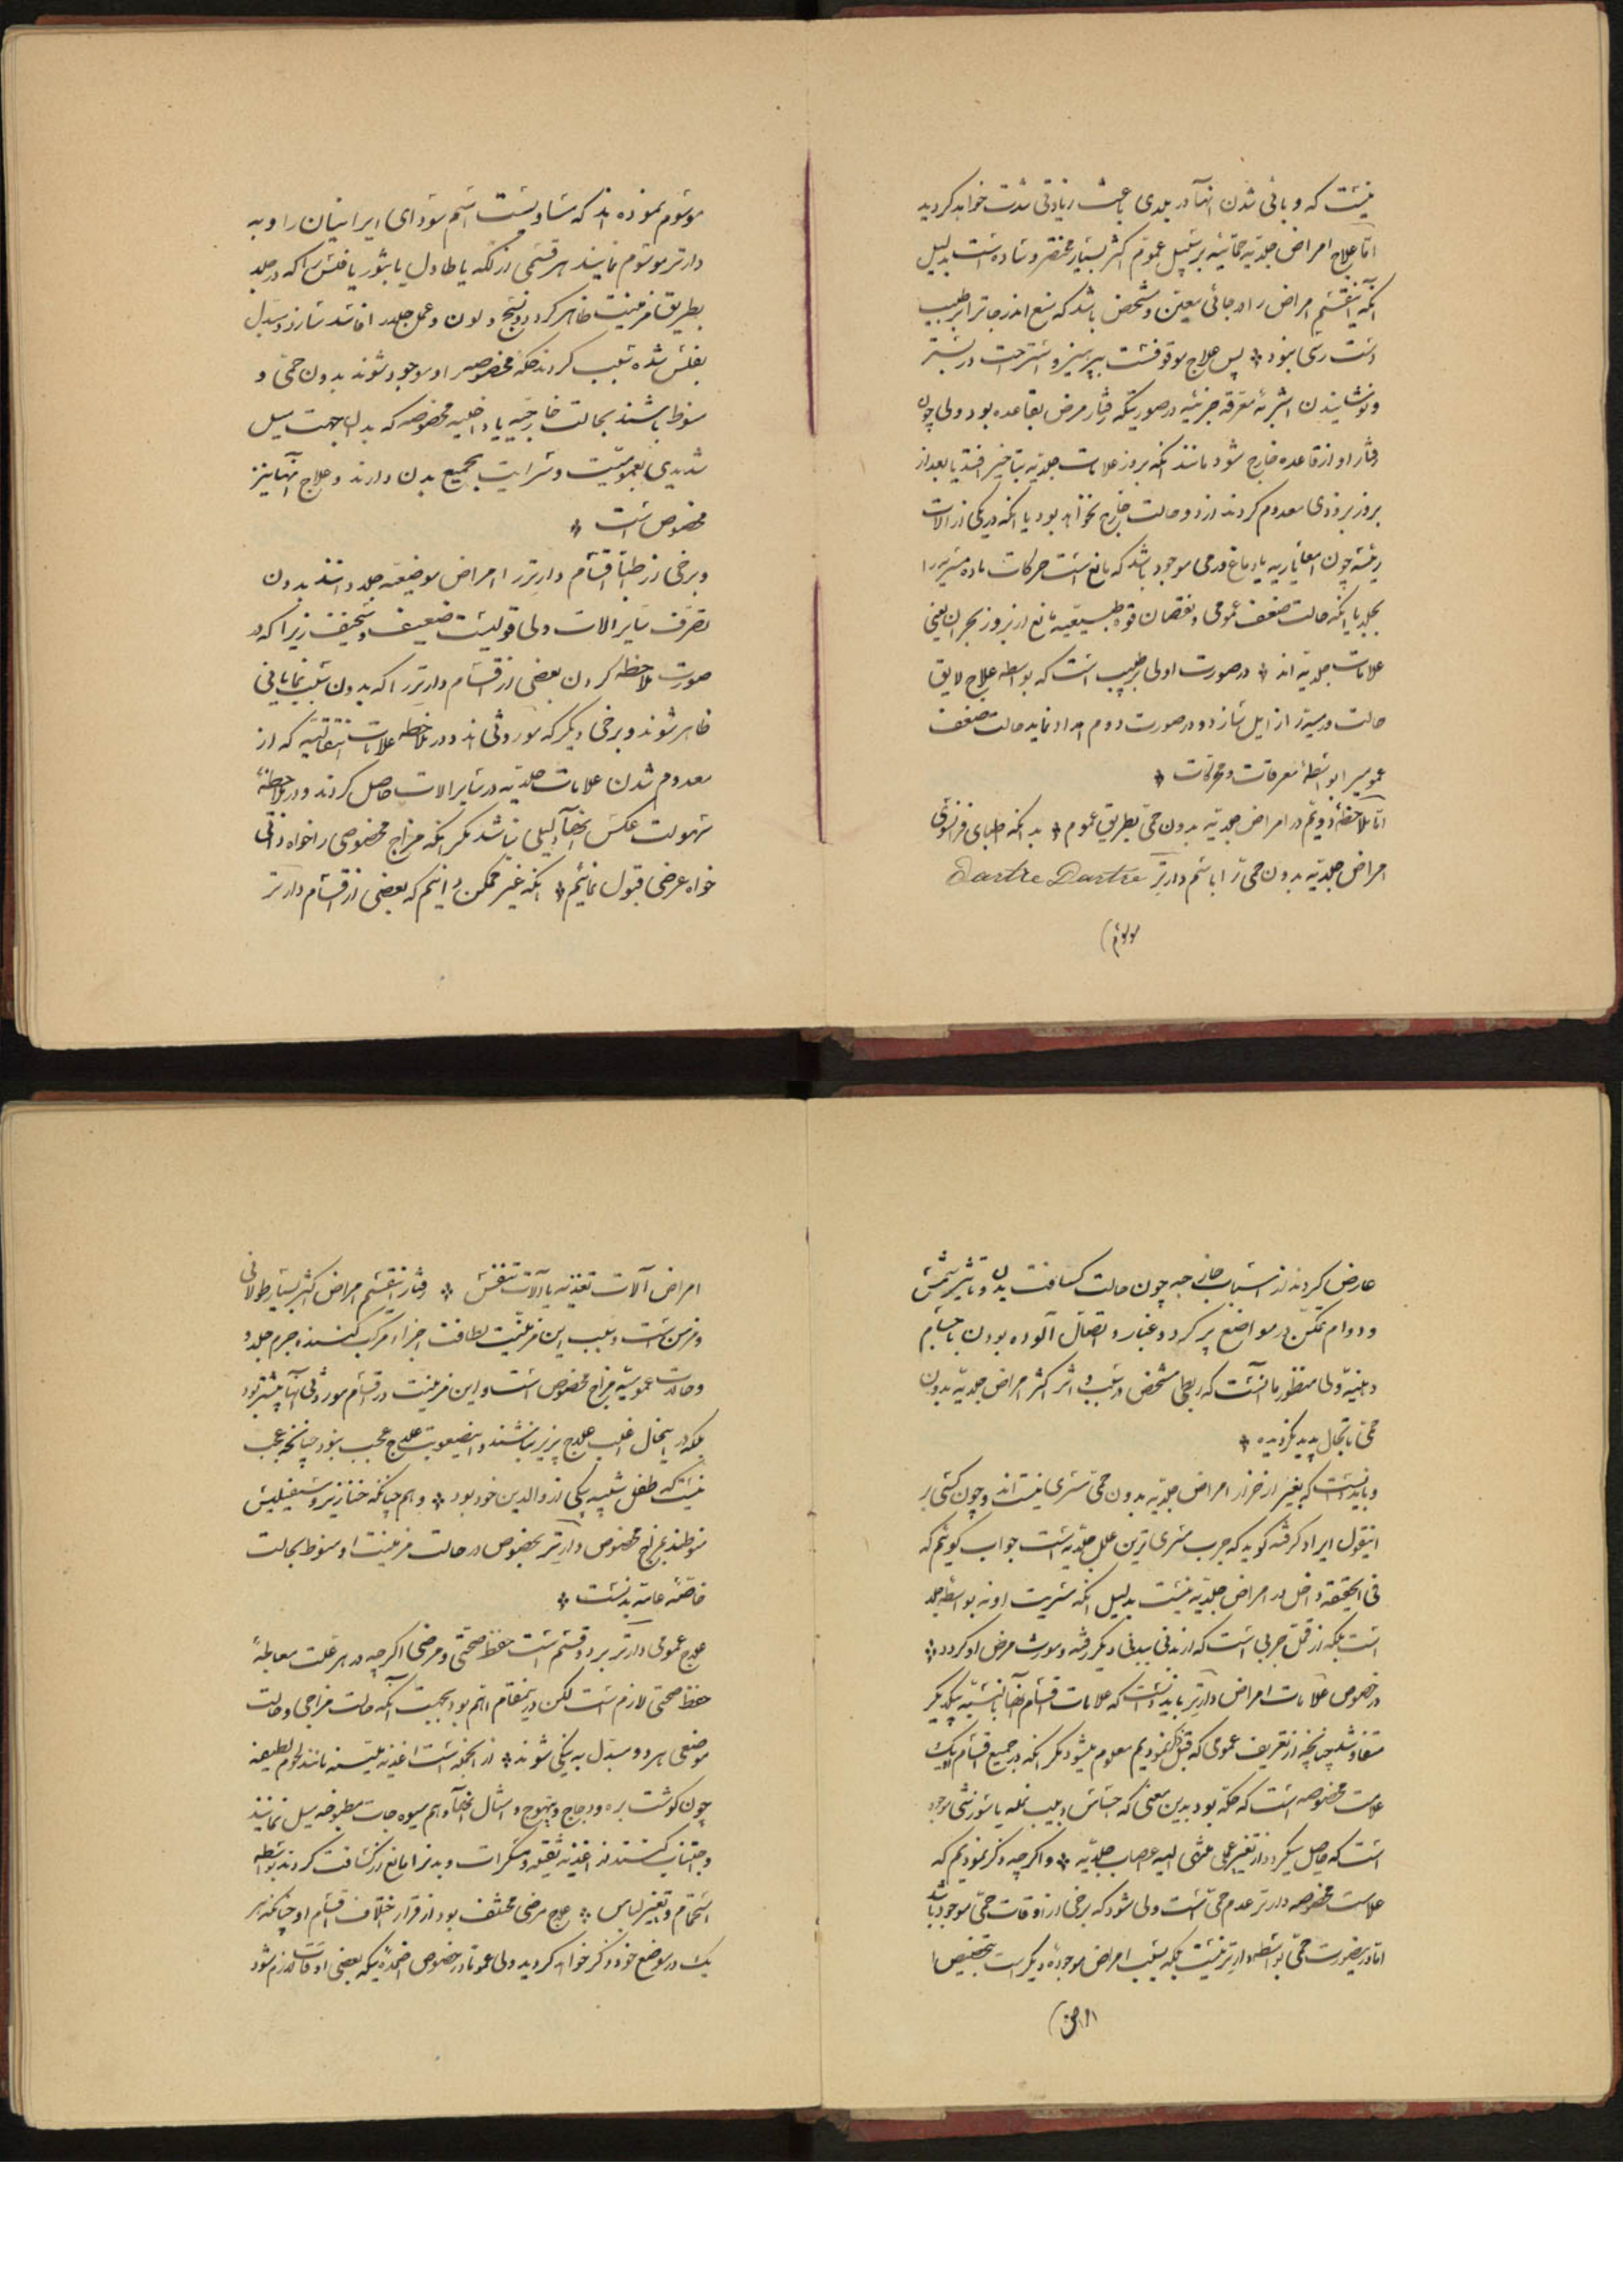 نیست که وبائی شدن آنها در بلدی باعث زیادتی شدت خواهد کردید
امّا علاج امراض جلدیّه حمائیّه بر سبیل عموم اکثر بسیار مختصر و ساده است بدلیل
آنکه اینقسم امراض را در جائی معیّن و مشخص باشد که منع اندر جا ترا بر طبیب
دست رسی نبود * پس علاج موقوفست بپرهیز و استراحت در بستر
و نوشانیدن اشربهٔ معرقه جزئیه در صورتیکه رفتار مرض بقاعده بود ولی چون
رفتار او از قاعده خارج شود مانند آنکه بروز علامات جلدیّه بتاخیر افتد یا بعد از
بروز بزودی معدوم کردند از دو حالت خارج نخواهد بود یا آنکه در یکی از آلات
رئیسه چون امعا یا ریه یا دماغ ورمی موجود باشد که مانع است حرکات ماده ممیزه را
بجلد یا آنکه حالت ضعف عمومی و نقصان قوه طبیعیّه مانع از بروز بحران یعنی
علامات جلدیّه اند * در صورت اولی بر طبیب است که بواسطه علاج لایق
حالت ورمیه را زایل سازد و در صورت دوم امداد نماید حالت ضعف
عمومیرا بواسطهٔ معرقات و محرکات *
امّا ملاحظهٔ دویّم در امراض جلدیّه بدون حمّی بطریق عموم * بدانکه اطبای فرانسوی
امراض جلدیّه بدون حمّی را باسم دارتر Dartre Dartre
موسوم)
موسوم نموده اند که مساویست اسم سودای ایرانیان را و به
دارتر موسوم نمایند هر قسمی از لکه یا طاول یا بثور یا فلس را که در جلد
بطریق مزمنیت ظاهر کردد و نسج و لون و عمل جلد را فاسد سازد و مبدل
بفلس شده سبب کردند حکه مخصوصیرا و موجود شوند بدون حمّی و
منوط باشند بحالت خارجیّه یا داخلیه مخصوصه که بدانجهت میل
شدیدی بعمومیّت و سرایت بجمیع بدن دارند و علاج آنها نیز
مخصوص است *
و برخی از اطبّا اقسام دارتر را امراض موضعیّه جلد دانند بدون
تصرّف سایر آلات ولی قولیست ضعیف و سخیف زیرا که در
صورت ملاحظه کردن بعضی از اقسام دارتر را که بدون سبب نمایانی
ظاهر شوند و برخی دیگر که موروثی اند و در ملاحظه علامات انتقالیّه که از
معدوم شدن علامات جلدیّه در سایر آلات حاصل کردند و در ملاحظهٔ
سهولت عکس آنها دلیلی نباشد مکر آنکه مزاج مخصوصی را خواه ذاتی
خواه عرضی قبول نمائیم * آنکه غیر ممکن دانیم که بعضی از اقسام دارتر
عارض کردند از اسباب خارجیه چون حالت کسافت بدن و تاثیر شمس
و دوام تمکن در مواضع پر کرد و غبار و اتصال آلوده بودن باجسام
دهنیّه ولی منظور ما آنست که ربطی مشخص در سبب و اثر اکثر امراض جلدیّه بدون
حمّی تا بحال پدید نکردیده *
و باید دانست که بغیر از خزاز امراض جلدیّه بدون حمّی مسری نیستند و چون کسی بر
اینقول ایراد کرفته کوید که جرب مسری ترین علل جلدیّه است جواب کوئیم که
فی الحقیقه داخل در امراض جلدیّه نیست بدلیل آنکه مسریت او نه بواسطه جلد
است بلکه از قمّل جربی است که از بدنی ببدنی دیگر رفته و مورث مرض او کردد *
در خصوص علامات امراض دارتر باید دانست که علامات اقسام آنها بالنسبه بیکدیکر
متفاوتند چنانچه از تعریف عمومی که قبل ذکر نمودیم معلوم میشود مکر آنکه در جمیع اقسام یک
علامت مخصوصه است که حکّه بود بدین معنی که احساس دبیب نمله یا سوزشی موجود
است که حاصل میکردد از تغییر عملی منتهی الیه اعصاب جلدیّه * و اکرچه ذکر نمودیم که
علامت مخصوصه دارتر عدم حمّی است ولی شود که برخی از اوقات حمّی موجود باشد
امّا در اینصورت حمّی بواسطه دارتر نیست بلکه بسبب امراض موجودهٔ دیکر است بتخصیص
امراض)
امراض آلات تغذیه یا آلات تنفس * رفتار اینقسم امراض اکثر بسیار طولانی
و مزمن است و سبب این مزمنیّت لطافت اجزاء مرکب کننده جرم جلد و
و حالت عمومیّه مزاج مخصوص است و این مزمنیّت در اقسام موروثی آنها بیشتر بود
بلکه در اینحال اغلب علاج پزیر نباشند و اینصعوبت علاج عجب نبود چنانچه عجب
نیست که طفل شبیه بیکی از والدین خود بود * و هم چنانکه خنازیر و سیفیلیس
منوطند بمزاج مخصوص دارتر بخصوص در حالت مزمنیت او منوط بحالت
خاصّه عامه بدنست *
علاج عمومی دارتر بر دو قسم است حفظ صحّتی و مرضی اکرچه در هر علت معالجهٔ
حفظ صحّتی لازم است لکن در اینمقام اهمّ بود بجهت آنکه حالت مزاجی و حالت
موضعی هر دو مبدّل به نیکی شوند * از اینجهت است اغذیه ملیّنه مانند لحوم لطیفه
چون کوشت بره و دجاج و تیهوج و امثال آنها و هم میوه جات مطبوخه میل نمایند
و اجتناب کنند از اغذیه ثقیله و مسکرات و بدنرا مانع از کسافت کردند بواسطه
استحمام و تغییر لباس * علاج مرضی مختلف بود از قرار اختلاف اقسام او چنانکه هر
یک در موضع خود ذکر خواهد کردید ولی عموماً در خصوص ادویه که بعضی اوقات لازم شود